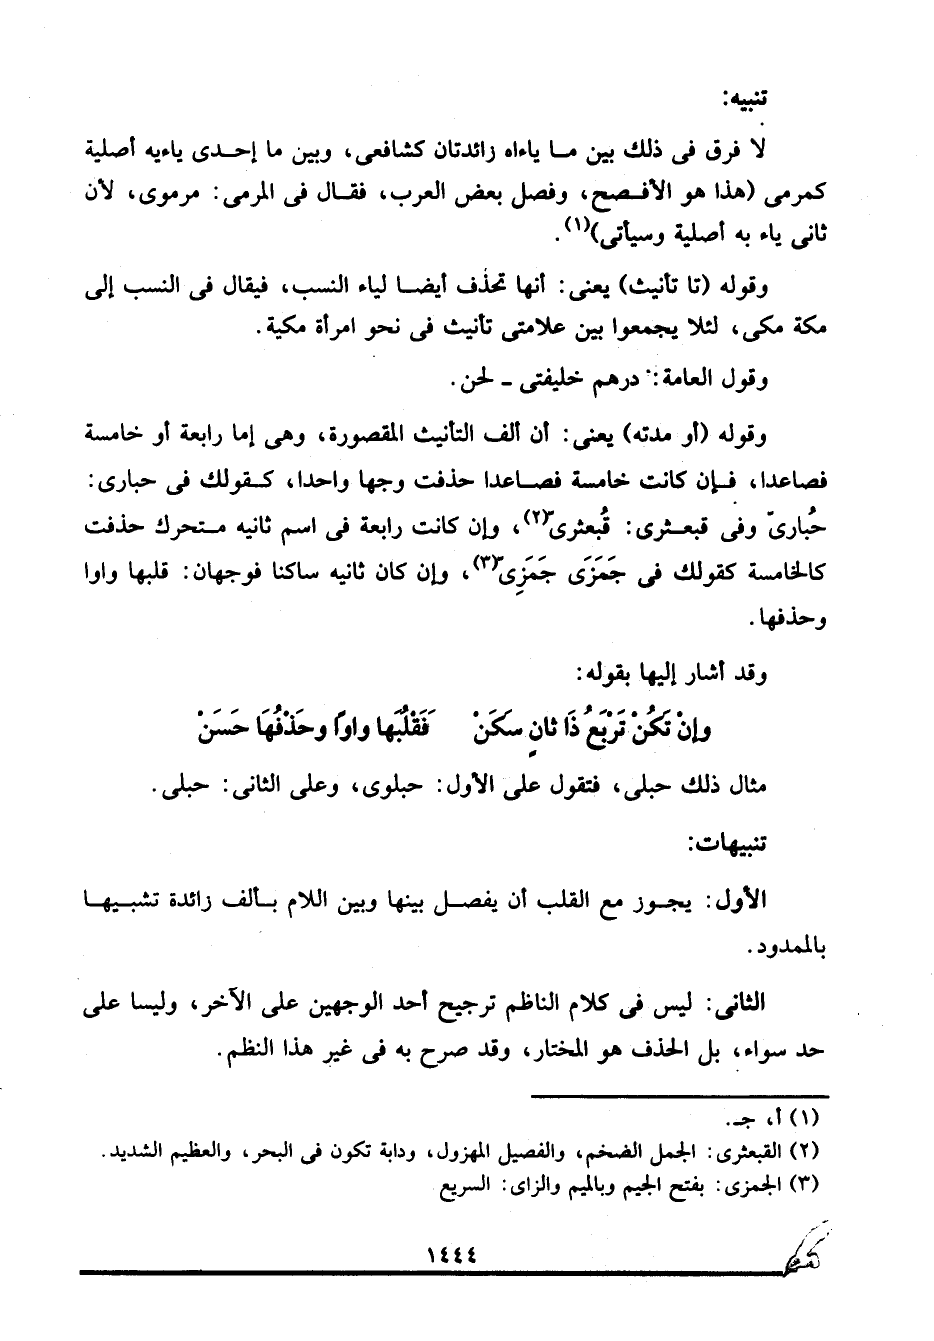 تنبيه:
لا فرق فى ذلك بين ما ياءاه زائدتان كشافعى، وبين ما إحدى ياءيه أصلية
كمرمى (هذا هو الأفصح، وفصل بعض العرب، فقال فى المرمى: مرموى، لأن
ثانى ياء به أصلية وسيأتى)(١).
وقوله (تا تأنيث) يعنى: أنها تحذف أيضا لياء النسب، فيقال فى النسب إلى
مكة مكى، لئلا يجمعوا بين علامتى تأنيث فى نحو امرأة مكية.
وقول العامة: درهم خليفتى ـ لحن.
وقوله (أو مدته) يعنى: أن ألف التأنيث المقصورة، وهى إما رابعة أو خامسة
فصاعدا، فإن كانت خامسة فصاعدا حذفت وجها واحدا، كقولك فى حبارى:
حُبارىّ وفى قبعثرى: قُبعثرىّ(٢)، وإن كانت رابعة فى اسم ثانيه متحرك حذفت
كالخامسة كقولك فى جَمَزَى جَمَزِىّ(٣)، وإن كان ثانيه ساكنا فوجهان: قلبها واوا
وحذفها.
وقد أشار إليها بقوله:
وإنْ تَكُنْ تَرْبَعُ ذَا ثانٍ سكَنْ فَقَلْبُها واوًا وحَذْفُهَا حَسَنْ
مثال ذلك حبلى، فتقول على الأول: حبلوى، وعلى الثانى: حبلى.
تنبيهات:
الأول: يجوز مع القلب أن يفصل بينها وبين اللام بألف زائدة تشبيها
بالممدود.
الثانى: ليس فى كلام الناظم ترجيح أحد الوجهين على الآخر، وليسا على
حد سواء، بل الحذف هو المختار، وقد صرح به فى غير هذا النظم.
(١) أ، جـ.
(٢) القبعثرى: الجمل الضخم، والفصيل المهزول، ودابة تكون فى البحر، والعظيم الشديد.
(٣) الجمزى: بفتح الجيم وبالميم والزاى: السريع
١٤٤٤